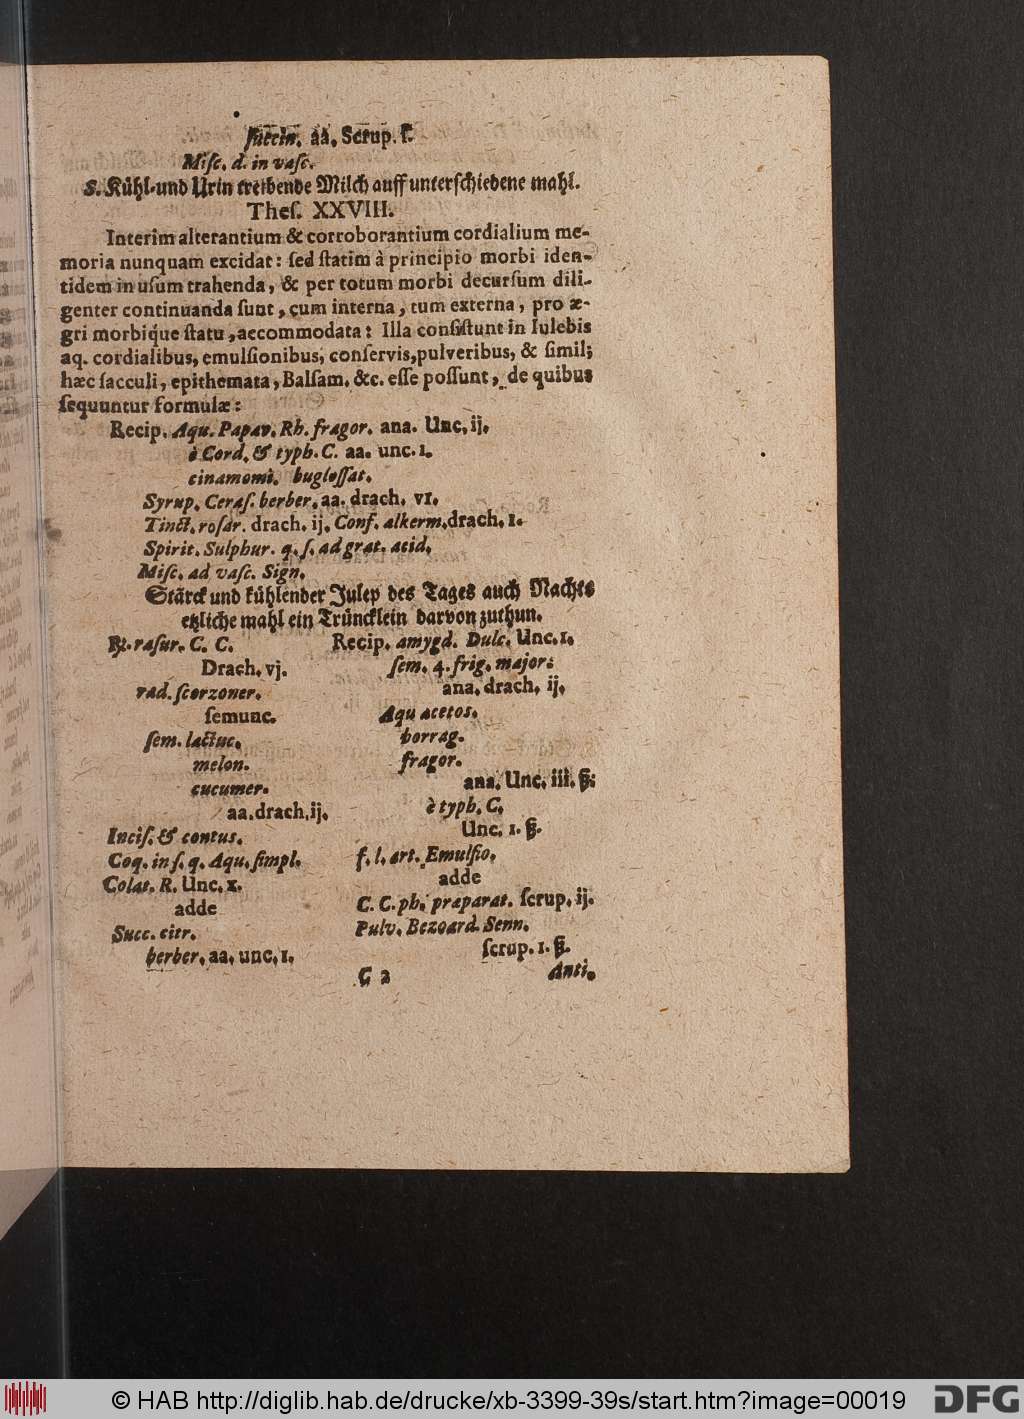 ſuccin. aa. Scrup. ſ.
Miſc. d. in vaſc.
s. Kühl-und Urin treibende Milch auff unterſchiedene mahl.
Theſ. XXVIII.
Interim alterantium & corroborantium cordialium me-
moria nunquam excidat: ſed ſtatim à principio morbi iden-
tidem in uſum trahenda, & per totum morbi decurſum dili-
genter continuanda ſunt, cum interna, tum externa, pro æ-
gri morbique ſtatu, accommodata: Illa conſiſtunt in Iulebis
aq. cordialibus, emulſionibus, conſervis, pulveribus, & ſimil;
hæc ſacculi, epithemata, Balſam. &c. eſſe poſſunt, de quibus
ſequuntur formulæ:
Recip. Aqu. Papav. Rh. fragor. ana. Unc. ij.
è Cord. & typh. C. aa. unc. 1.
cinamomi. bugloſſat.
Syrup. Ceraſ. berber. aa. drach. vı.
Tinct. roſar. drach. ij. Conf. alkerm. drach. 1.
Spirit. Sulphur. q. ſ. ad grat. acid.
Miſc. ad vaſc. Sign.
Stärck und kühlender Julep des Tages auch Nachts
etzliche mahl ein Trüncklein darvon zuthun.
℞. raſur. C. C.
Drach. vj.
rad. ſcorzoner.
ſemunc.
ſem. lactuc.
melon.
cucumer.
aa. drach. ij.
Inciſ. & contus.
Coq. in ſ. q. Aqu. ſimpl.
Colat. R. Unc. x.
adde
Succ. citr.
berber. aa. unc. 1.
Recip. amygd. Dulc. Unc. 1.
ſem. 4. frig. major:
ana. drach. ij.
Aqu acetos.
borrag.
fragor.
ana. Unc. iii. ß:
è typh. C.
Unc. 1. ß.
f. l. art. Emulſio.
adde
C. C. ph. præparat. ſcrup. ij.
Pulv. Bezoard. Senn.
ſcrup. 1. ß.
C 2
Anti.
© HAB http://diglib.hab.de/drucke/xb-3399-39s/start.htm?image=00019
DFG